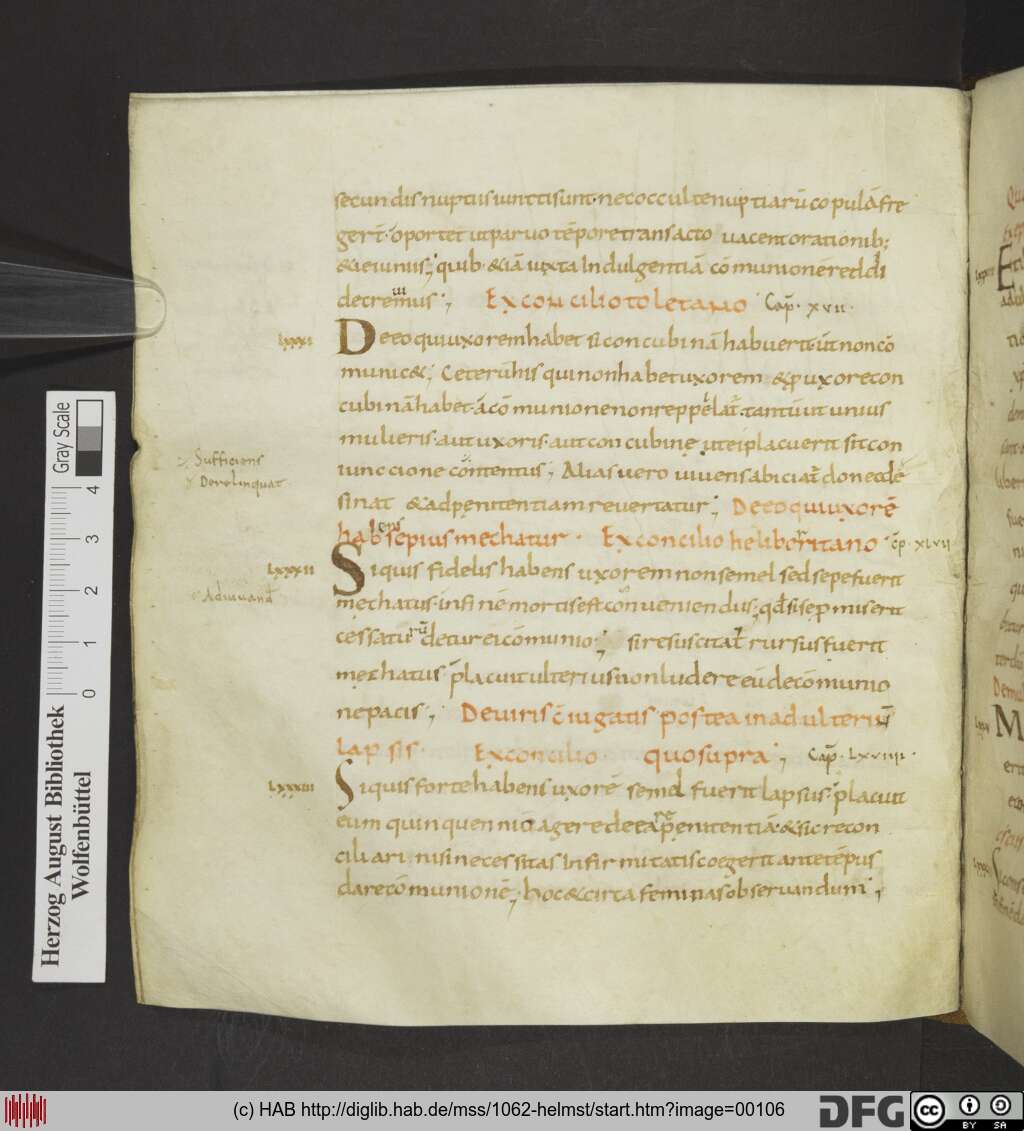 secundis nuptiis iuncti sunt · nec occulte nuptiarū copulā fre
gerī · oportet ut parvo tēpore transacto vacent orationib;
& ieiuniis; quib · & iā iuxta indulgentiā cōmunionē reddi
decrevimus; Ex concilio toletano Cap̄ · xvii ·
lxxxi De eo qui uxorem habet si concubinā habuerit ūt non cō
munic&; Ceterū his qui non habet uxorem & p uxore con
cubinā habet · a cōmunione non reppellat̄ · tantū ut unius
mulieris · aut uxoris · aut concubinę ut ei placuerit sit con
Sufficiens
iunccione contentus; Alias vero vivens abiciat̄ donec de
Derelinquat
sinat & ad pęnitentiam revertatur; De eo qui uxorē
habens sepius mechatur · Ex concilio heliborritano c̄p · xlvii
lxxxii Siquis fidelis habens uxorem non semel sed sepe fuerit
Adiuvand̄
mechatus · in finē mortis est conveniendus; qđ si sep miserit
cessaturū detur ei cōmunio; si resuscitat̄ rursus fuerit
mechatus p̄lacuit ulterius non ludere eū de cōmunio
ne pacis; De viris c̄iugatis postea in adulteriū
lapsis · Ex concilio quo supra; Cap̄ · lxviiii ·
lxxxiii Siquis forte habens uxorē semel fuerit lapsus · p̄lacuit
eum quinquenniō agere de ea re pęnitentiā · & sic recon
ciliari nisi necessitas infirmitatis coegerit ante tēpus
dare cōmunionē; hoc & circa feminas observandum;
Herzog August Bibliothek
Wolfenbüttel
0 1 2 3 4
Gray Scale
(c) HAB http://diglib.hab.de/mss/1062-helmst/start.htm?image=00106
DFG
cc BY SA